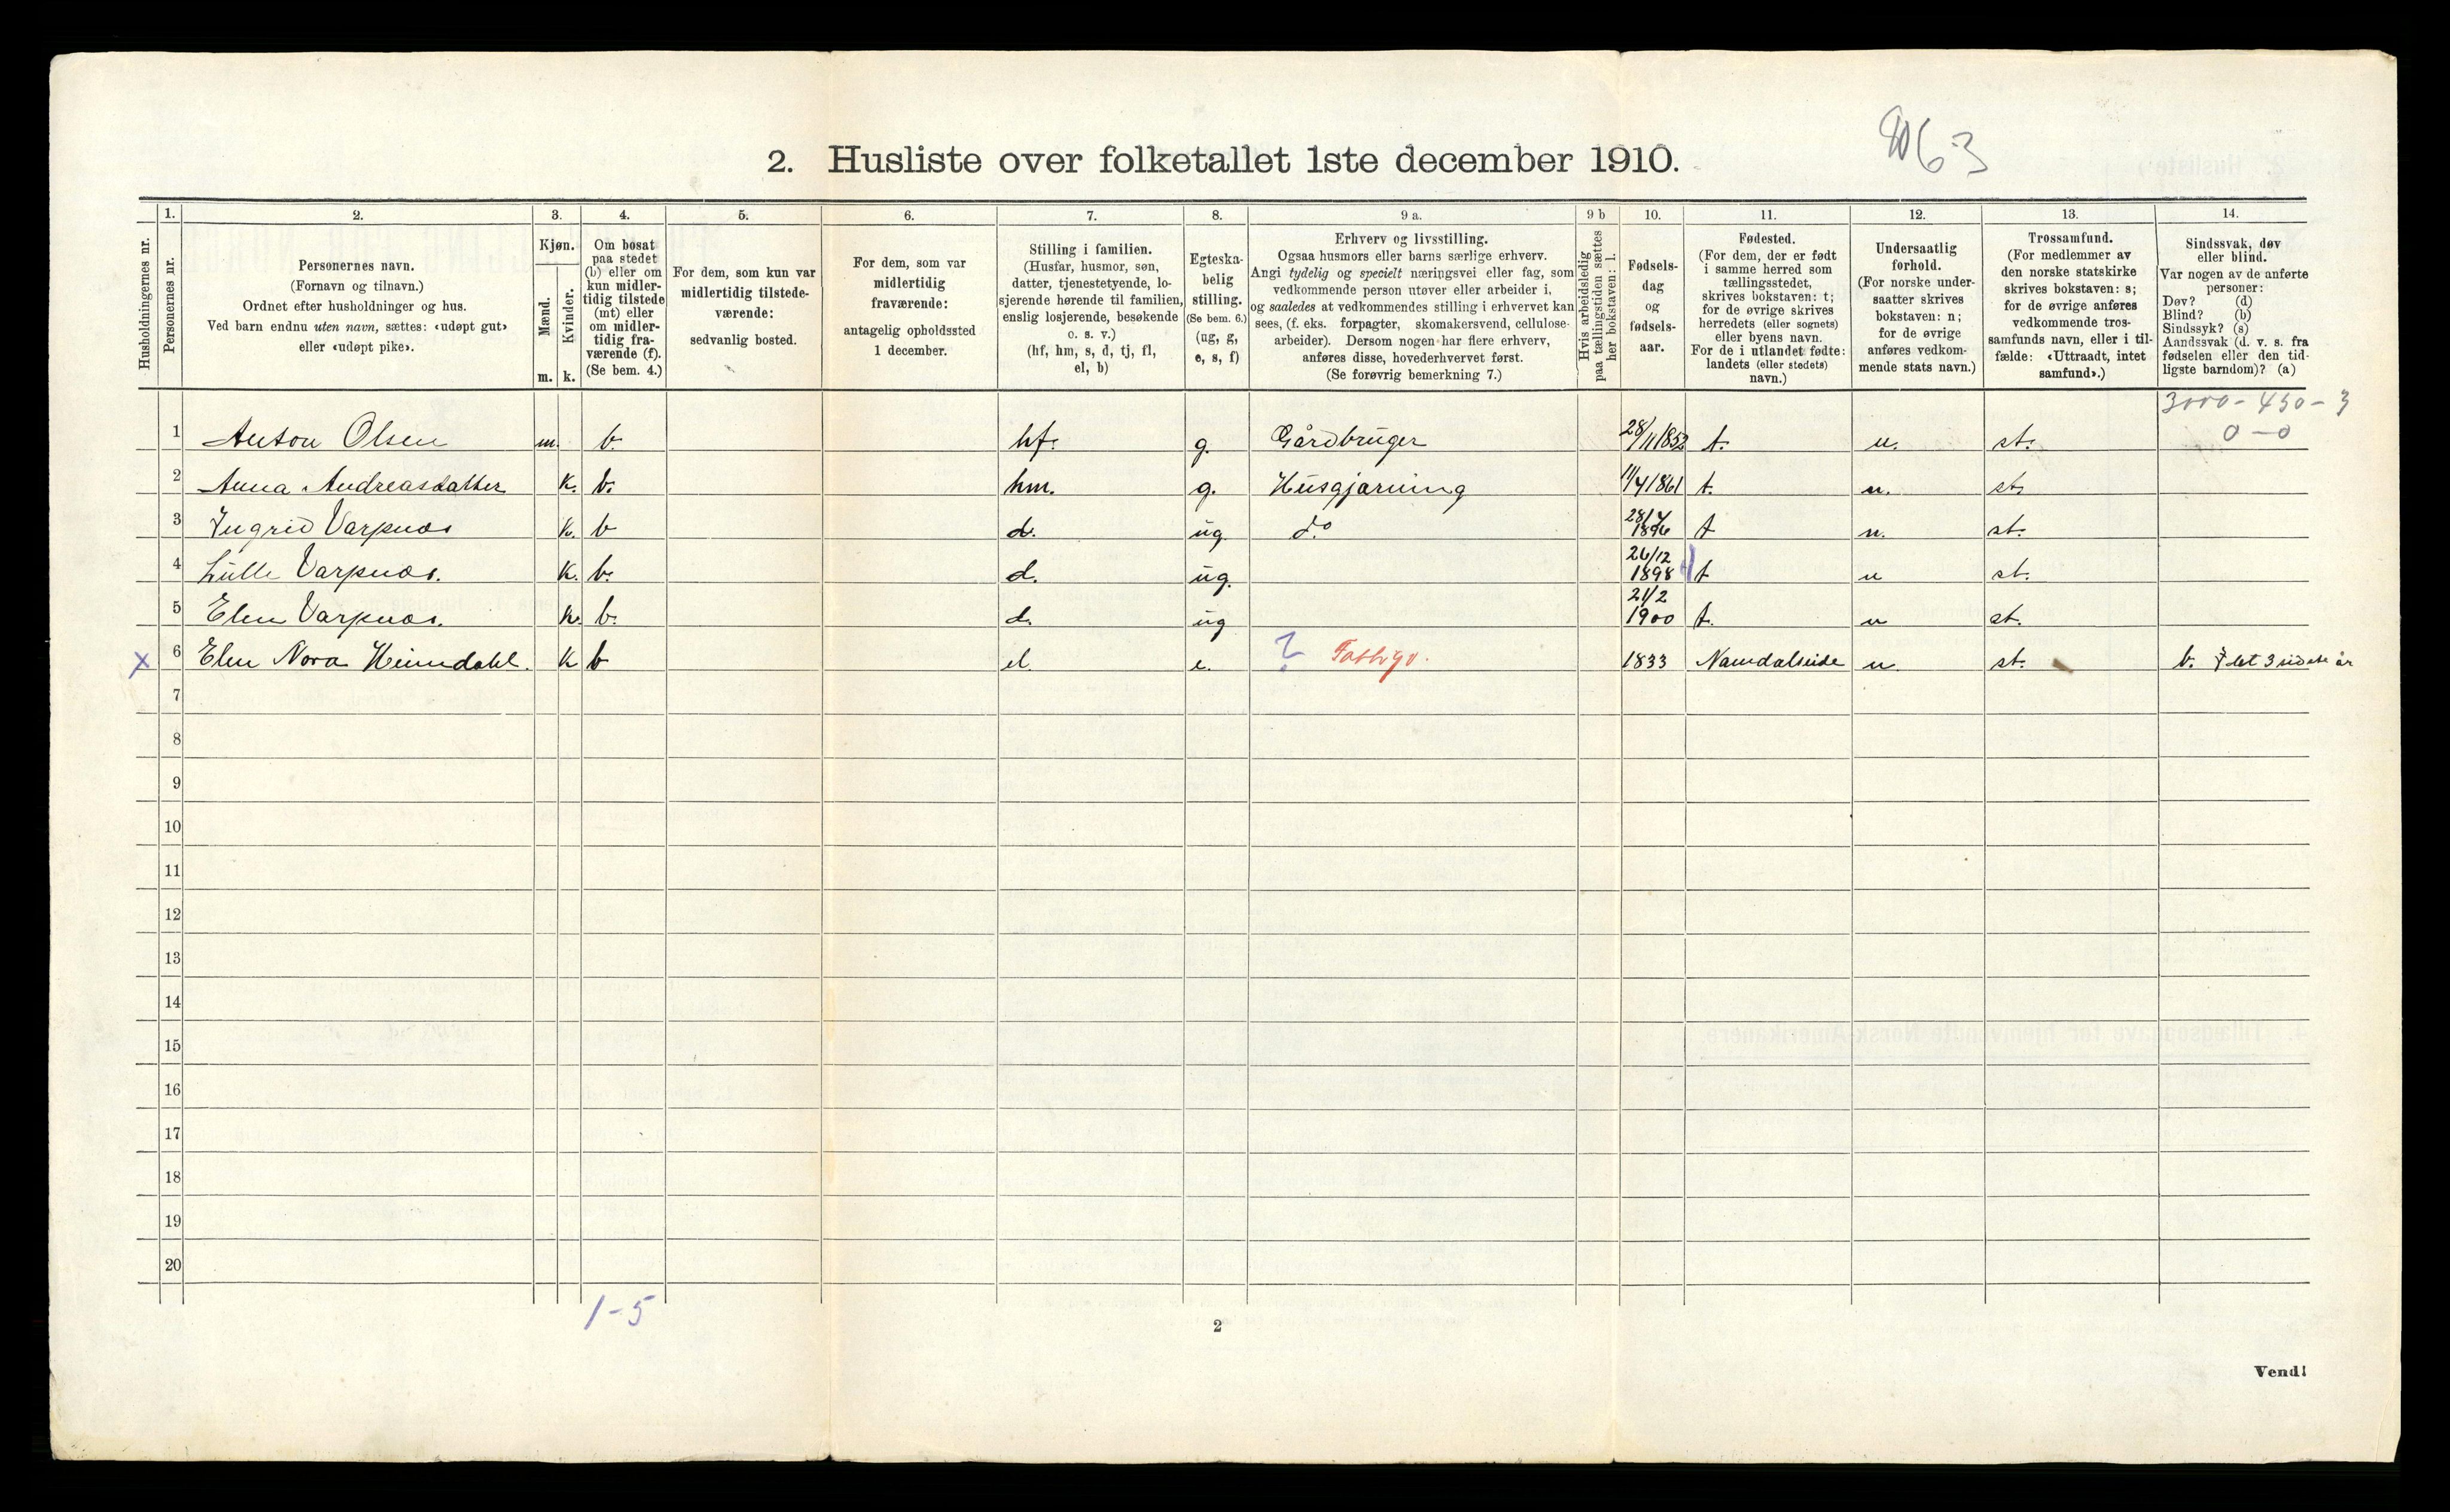 2. Husliste over folketallet 1ste december 1910.
63
Husholdningernes nr.
1.
Personernes nr.
2.
Personernes navn.
(Fornavn og tilnavn.)
Ordnet efter husholdninger og hus.
Ved barn endnu uten navn, sættes: «udøpt gut»
eller «udøpt pike».
3.
Kjøn.
Mænd.
m.
Kvinder.
k.
4.
Om bosat
paa stedet
(b) eller om
kun midler-
tidig tilstede
(mt) eller
om midler-
tidig fra-
værende (f).
(Se bem. 4.)
5.
For dem, som kun var
midlertidig tilstede-
værende:
sedvanlig bosted.
6.
For dem, som var
midlertidig
fraværende:
antagelig opholdssted
1 december.
7.
Stilling i familien.
(Husfar, husmor, søn,
datter, tjenestetyende, lo-
sjerende hørende til familien,
enslig losjerende, besøkende
o. s. v.)
(hf, hm, s, d, tj, fl,
el, b)
8.
Egteska-
belig
stilling.
(Se bem. 6.)
(ug, g,
e, s, f)
9 a.
Erhverv og livsstilling.
Ogsaa husmors eller barns særlige erhverv.
Angi tydelig og specielt næringsvei eller fag, som
vedkommende person utøver eller arbeider i,
og saaledes at vedkommendes stilling i erhvervet kan
sees, (f. eks. forpagter, skomakersvend, cellulose-
arbeider). Dersom nogen har flere erhverv,
anføres disse, hovederhvervet først.
(Se forøvrig bemerkning 7.)
9 b
Hvis arbeidsledig
paa tællingstiden sættes
her bokstaven: l.
10.
Fødsels-
dag
og
fødsels-
aar.
11.
Fødested.
(For dem, der er født
i samme herred som
tællingsstedet,
skrives bokstaven: t;
for de øvrige skrives
herredets (eller sognets)
eller byens navn.
For de i utlandet fødte:
landets (eller stedets)
navn.)
12.
Undersaatlig
forhold.
(For norske under-
saatter skrives
bokstaven: n;
for de øvrige
anføres vedkom-
mende stats navn.)
13.
Trossamfund.
(For medlemmer av
den norske statskirke
skrives bokstaven: s;
for de øvrige anføres
vedkommende tros-
samfunds navn, eller i til-
fælde: «Uttraadt, intet
samfund».)
14.
Sindssvak, døv
eller blind.
Var nogen av de anførte
personer:
Døv? (d)
Blind? (b)
Sindssyk? (s)
Aandssvak (d. v. s. fra
fødselen eller den tid-
ligste barndom)? (a)
3000 - 450 - 3
0 - 0
1 Anton Olsen m. b. hf. g. Gårdbruger 28/11 1852 t. n. st.
2 Anna Andreasdatter k. b. hm. g. Husgjerning 11/4 1861 t. n. st.
3 Ingrid Varpnes k. b d. ug. do 28/4 1896 t n. st.
4 Lulle Varpnes. k. b. d. ug. 26/12 1898 t n st.
5 Elen Varpnes. k. b. d. ug 21/2 1900 t. n st.
x 6 Elen Nora Heimdahl. k b el. e. ? Fattigu. 1833 Namdalseide n. st. b. I det 3 sidste år
7
8
9
10
11
12
13
14
15
16
17
18
19
20
1 - 5
2
Vend!